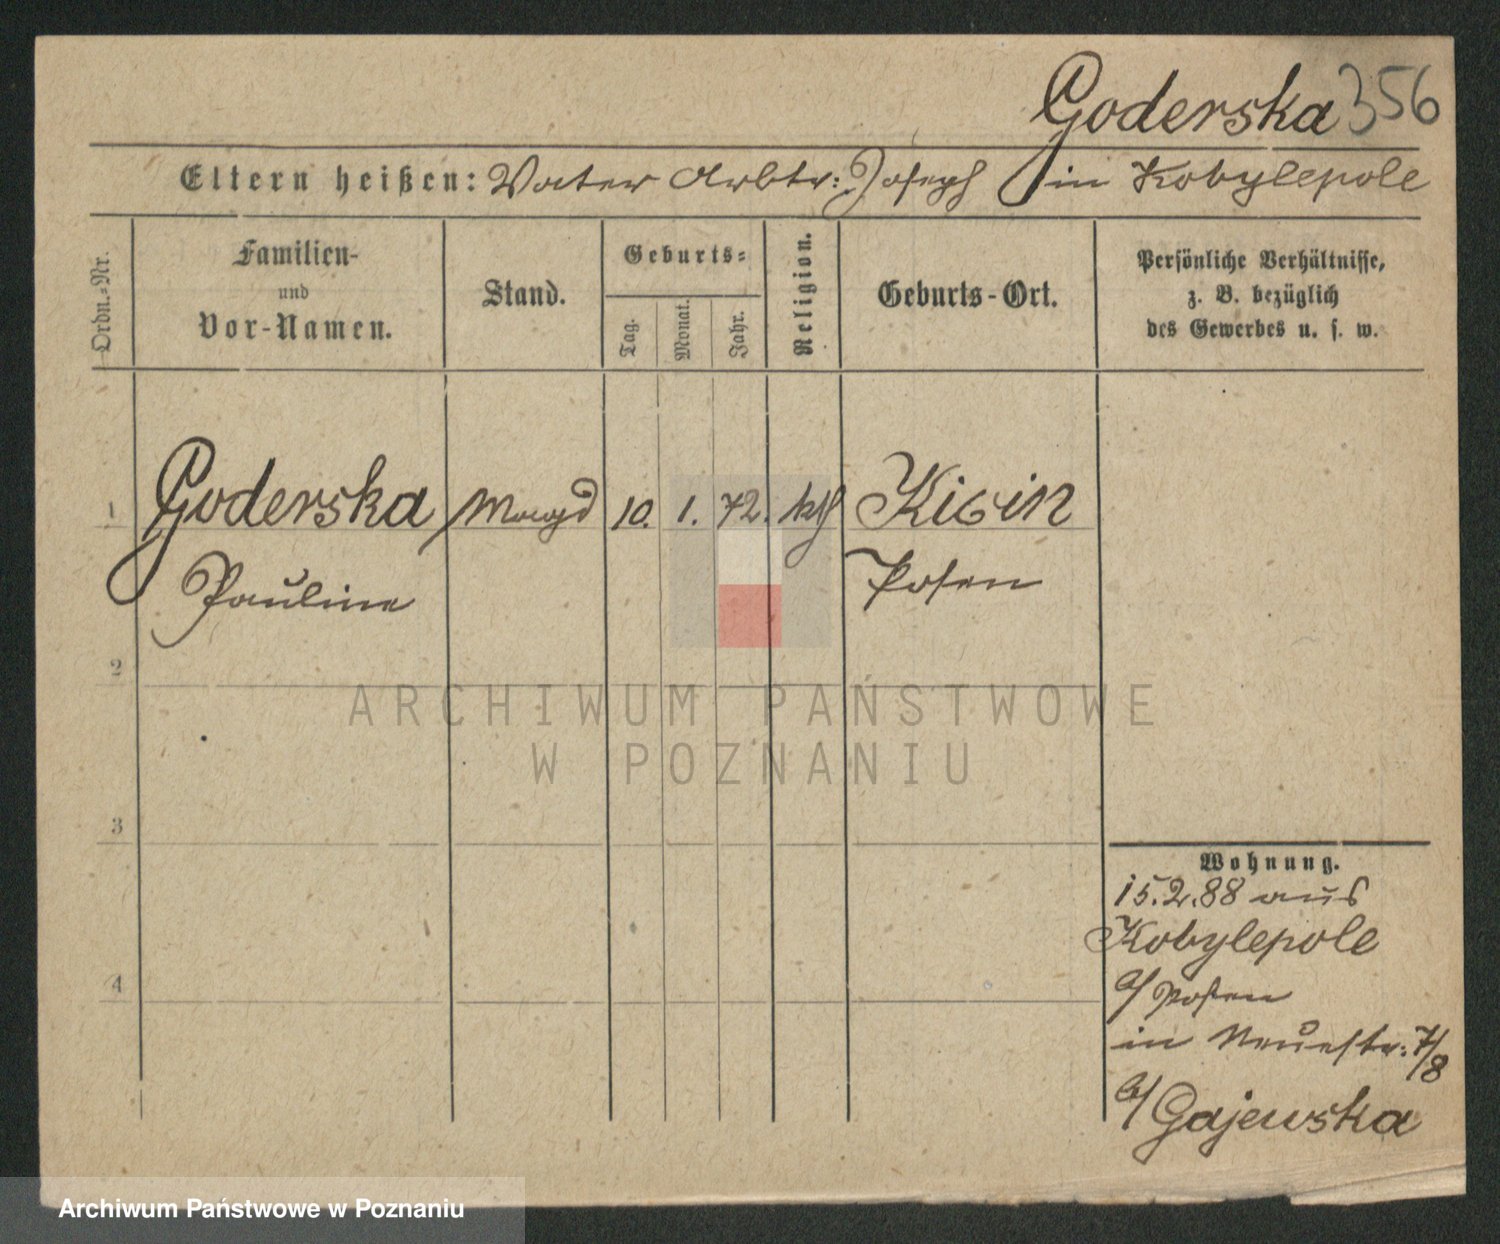 Goderska 356
Eltern heißen: Vater Arbtr: Joseph in Kobylepole
Ordn.-Nr.
Familien-
und
Vor-Namen.
Stand.
Geburts-
Tag.
Monat.
Jahr.
Religion.
Geburts-Ort.
Persönliche Verhältnisse,
z. B. bezüglich
des Gewerbes u. s. w.
1 Goderska Magd 10. 1. 72. kth Kicin
Pauline Posen
2
3
4
Wohnung.
15.2.88 aus
Kobylepole
a/ Posen
in Neuestr: 7/8
b/ Gajewska
ARCHIWUM PAŃSTWOWE
W POZNANIU
Archiwum Państwowe w Poznaniu